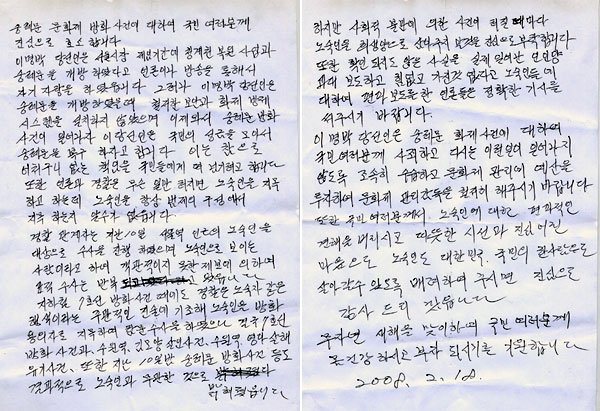 숭례문 문화제 방화 사건에 대하여 국민 여러분께
진심으로 호소 합니다.
이명박 당선인은 서울시장 재임기간에 청계천 복원 사업과
숭례문을 개방 하였다고 언론이나 방송을 통해서
자기 자랑은 하였습니다. 그러나 이명박 당선인은
숭례문을 개방 하였음에 철저한 보안과 화재 방제
시스템을 설치하지 않았으며 이제와서 숭례문 방화
사건이 일어나자 이 당선인은 국민의 성금을 모아서
숭례문을 복구 하라고 합니다. 이는 참으로
어처구니 없는 책임을 국민들에게 떠 넘기려고 합니다.
또한 언론과 경찰은 무슨 일만 터지면 노숙인을 지목
하고 하는데 노숙인을 항상 범죄의 구성에서
지목 하는지 알수가 없습니다.
경찰 관계자는 지난 10일 서울역 인근의 노숙인을
대상으로 수사를 진행 하였으며 노숙인으로 보이는
사람이라고 하여 객관적이지 못한 제보에 의하여
표적 수사는 방화 되고 왔습니다
지하철 7호선 방화 사건 때에도 경찰은 노숙자 같은
행색이라는 주관적인 진술에 기초해 노숙인은 방화
용의자로 지목하여 표적 수사를 하였으나 결국 7호선
방화 사건과, 수원역, 김모양 살인사건, 수원역 영아 살해
유기사건, 또한 지난 10일밤 숭례문 방화 사건 등도
결과적으로 노숙인과 무관한 것으로
밝혀졌읍니다
하지만 사회적 불만에 의한 사건이 터질 때마다
노숙인을 희생양으로 삼아주지 않기를 진심으로 부탁합니다.
또한 확인 되지도 않은 사실을 실제 일어난 일인양
과대 보도하고 원없고 거침것 없다고 노숙인들에
대하여 편파 보도를 한 언론들은 정확한 기사를
써주시기 바랍니다.
이명박 당선인은 숭례문 화재 사건에 대하여
국민여러분께 사죄하고 다시는 이런일이 일어나지
않도록 조속히 수습하고 문화재 관리에 예산을
투자하여 문화재 관리감독을 철저히 해주시기 바랍니다
또한 국민 여러분께서, 노숙인에 대한 편파적인
견해를 버리시고 따뜻한 시선과 진심어린
마음으로 노숙인도 대한민국 국민의 한사람으로
살아갈수 있도록 배려하여 주시면 진심으로
감사 드리 겠읍니다
무자년 새해를 맞이하여 국민 여러분께
몸건강 하시고 부자 되시기를 기원합니다
2008. 2. 18.